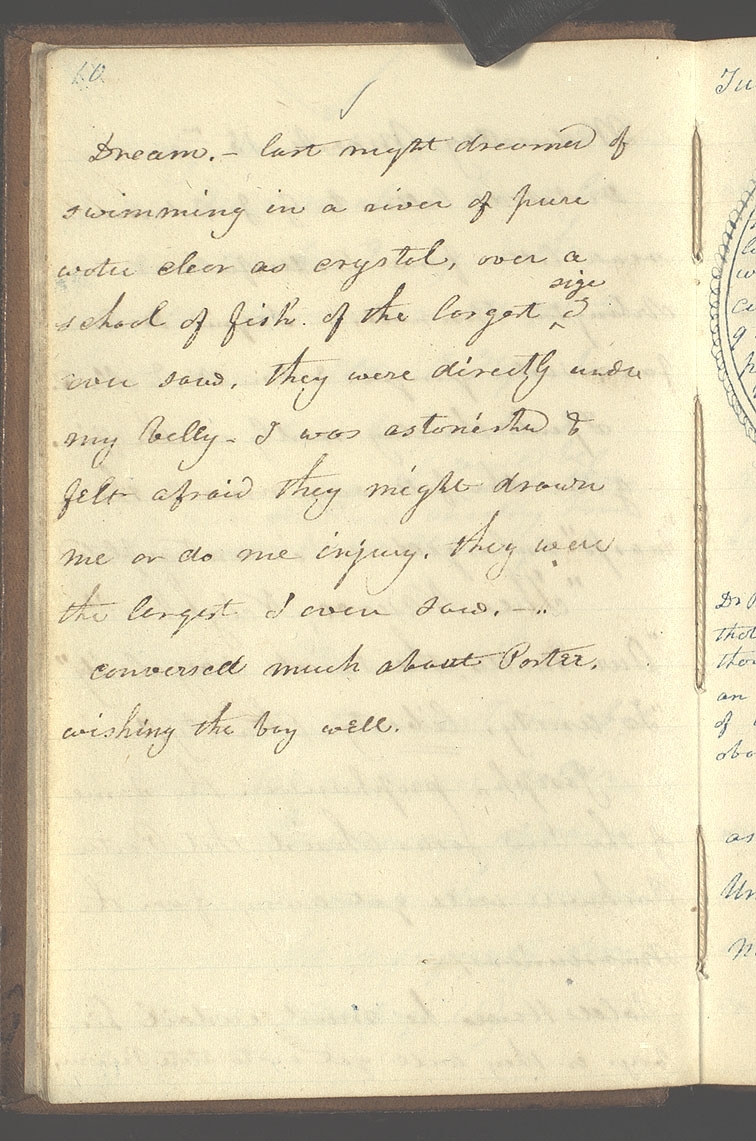 60
Dream. - last night dreamed of
swimming in a river of pure
water clear as crystal, over a
school of fish. of the largest size I
ever saw. they were directly under
my belly - I was astonished &
felt afraid they might drown
me or do me injury. they were
the largest I ever saw. -..
conversed much about Porter.
wishing the boy well.
an
of
as